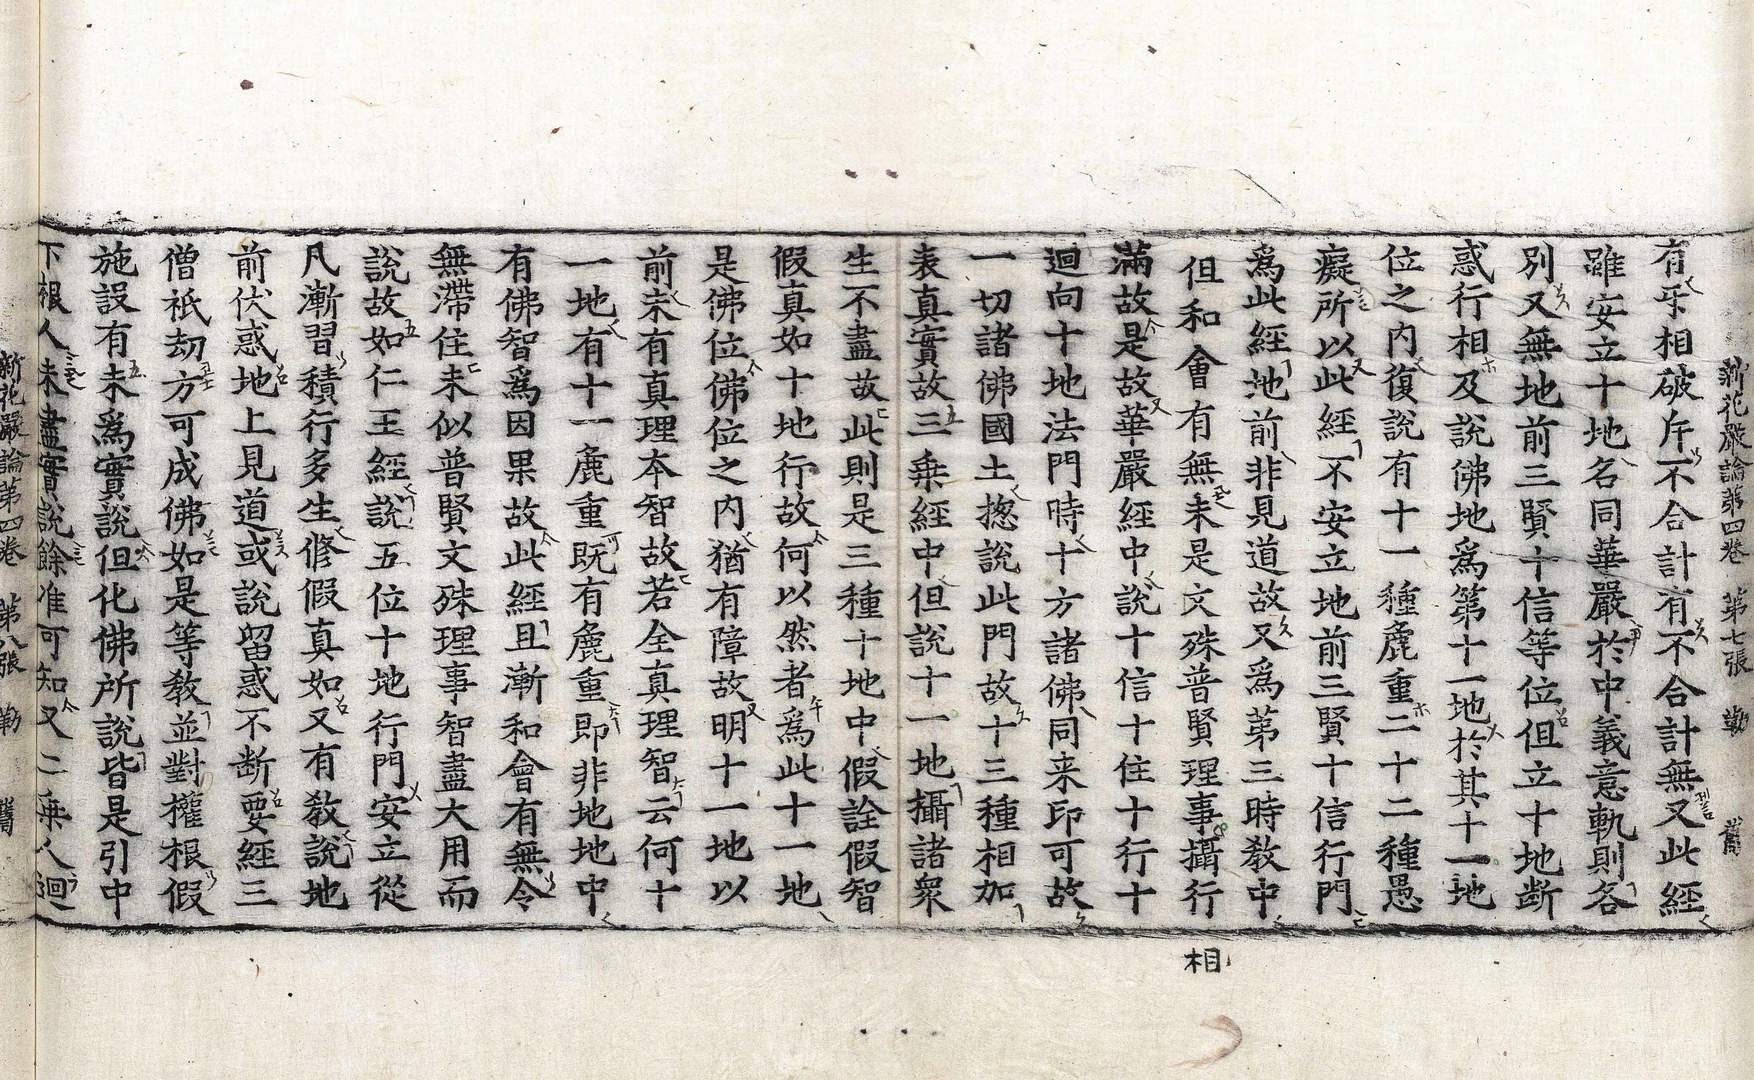 新花嚴論第四卷 第七張 勒 舊
有乎相破斥不合計有不合計無又此經
雖安立十地名同華嚴於中義意軌則各
別又無地前三賢十信等位但立十地断
惑行相及說佛地爲第十一地於其十一地
位之內復說有十一種麁重二十二種愚
癡所以此經不安立地前三賢十信行門
爲此經地前非見道故又爲第三時教中
但和會有無未是文殊普賢理事攝行
相
滿故是故華嚴經中說十信十住十行十
迴向十地法門時十方諸佛同来印可故
一切諸佛國土揔說此門故十三種相加
表真實故三乗經中但說十一地攝諸衆
生不盡故此則是三種十地中假詮假智
假真如十地行故何以然者爲此十一地
是佛位佛位之内猶有障故明十一地以
前未有真理本智故若全真理智云何十
一地有十一麁重既有麁重即非地地中
有佛智爲因果故此經且漸和會有無令
無滯住未似普賢文殊理事智盡大用而
說故如仁王經說五位十地行門安立從
凡漸習積行多生修假真如又有教說地
前伏惑地上見道或說留惑不断要經三
僧祇劫方可成佛如是等教並對權根假
施設有未爲實說但化佛所說皆是引中
下根人未盡實說餘准可知又二乗人迴
新花嚴論第四卷 第八張 勒 舊